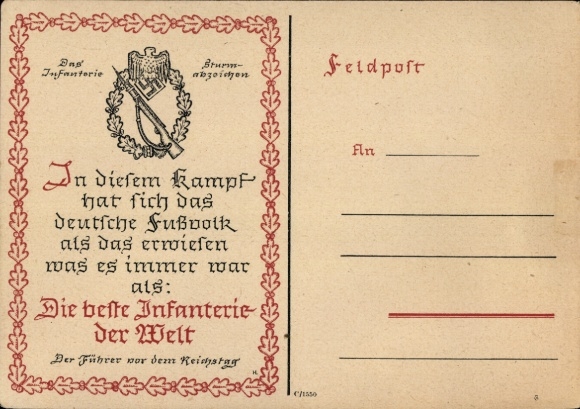 Das Infanterie Sturm-
abzeichen
In diesem Kampf
hat sich das
deutsche Fußvolk
als das erwiesen
was es immer war
als:
Die beste Infanterie
der Welt
Der Führer vor dem Reichstag
H.
Feldpost
An
C/1550
G